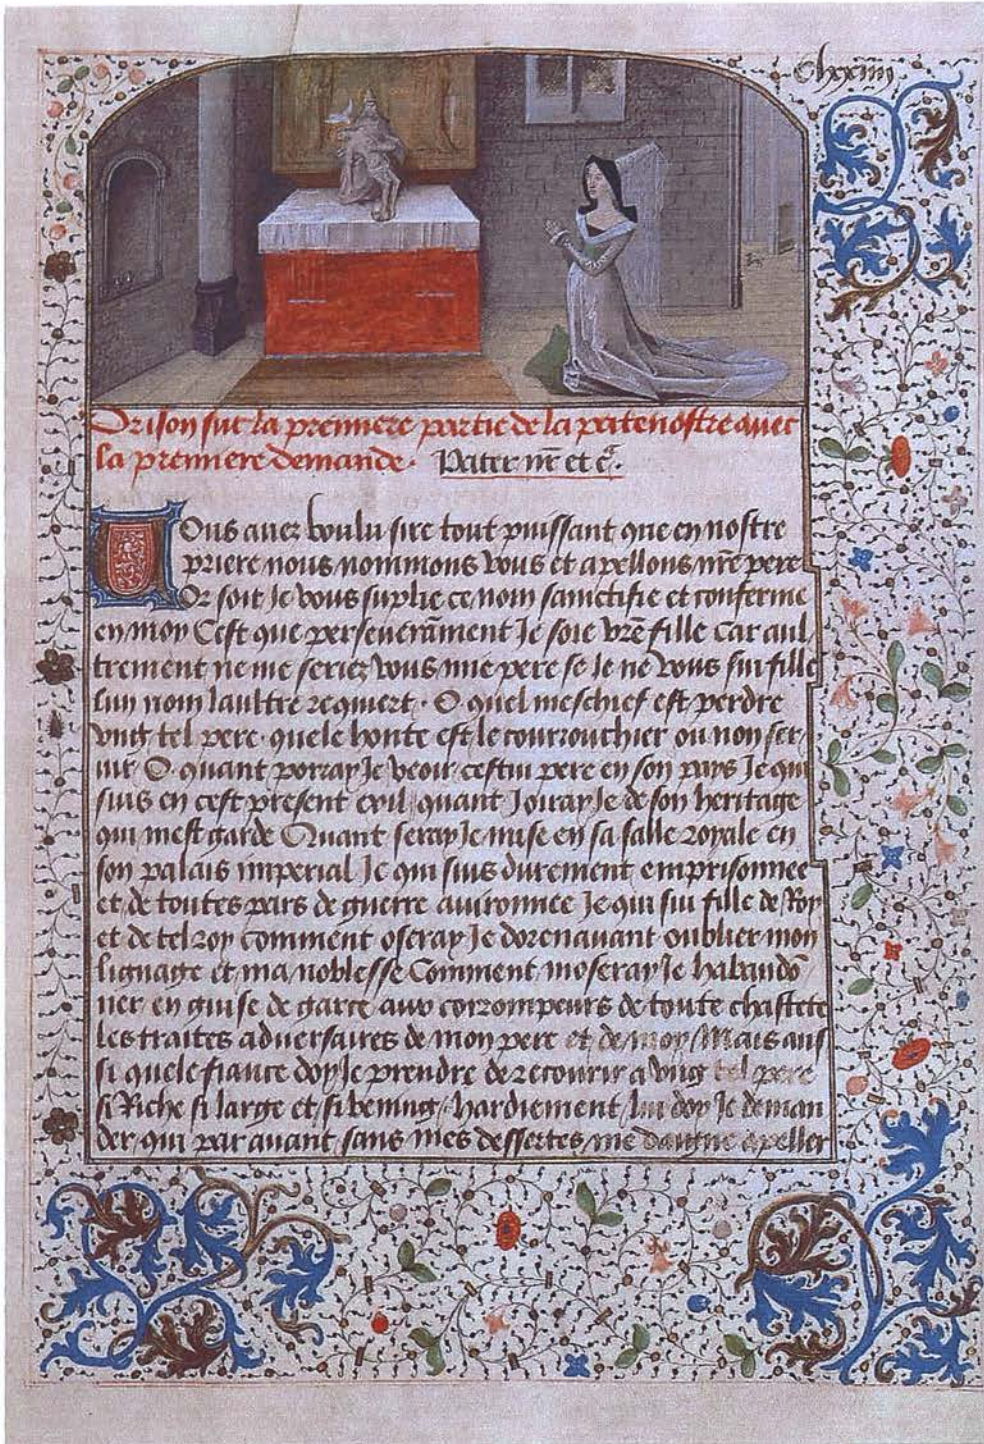 Clxxiiii
Orison sur la premiere partie de la patenostre avec
la premiere demande. Pater nr̄ et cᵃ.
Vous avez voulu sire tout puissant que en nostre
priere nous nommons vous et apellons nr̄e pere
Or soit Je vous suplie ce nom sainctifie et conferme
en moy Cest que perseveram̄ent Je soie vr̄e fille Car aul
trement ne me seriez vous mie pere se Je ne vous sui fille
lun nom laultre requiert. O quel meschief est perdre
vng tel pere. quele honte est le courrouchier ou non ser
uir O. quant porray Je veoir cestui pere en son pays Je qui
suis en cest present exil quant Joiray Je de son heritage
qui mest garde Quant seray Je mise en sa salle royale en
son palais imperial Je qui suis durement emprisonnee
et de toutes pars de guerre auironnee Je qui sui fille de Roy
et de tel roy comment oseray Je dorenauant oublier mon
lignage et ma noblesse Comment moseray Je habandō
ner en guise de garce aux corrompeurs de toute chastete
les traites aduersaires de mon pere et de moy Mais aus
si quele fiance doy Je prendre de recourir a vng tel pere
si Riche si large et si bening. hardiement lui doy Je deman
der qui par auant sans mes dessertes me daigne apeller